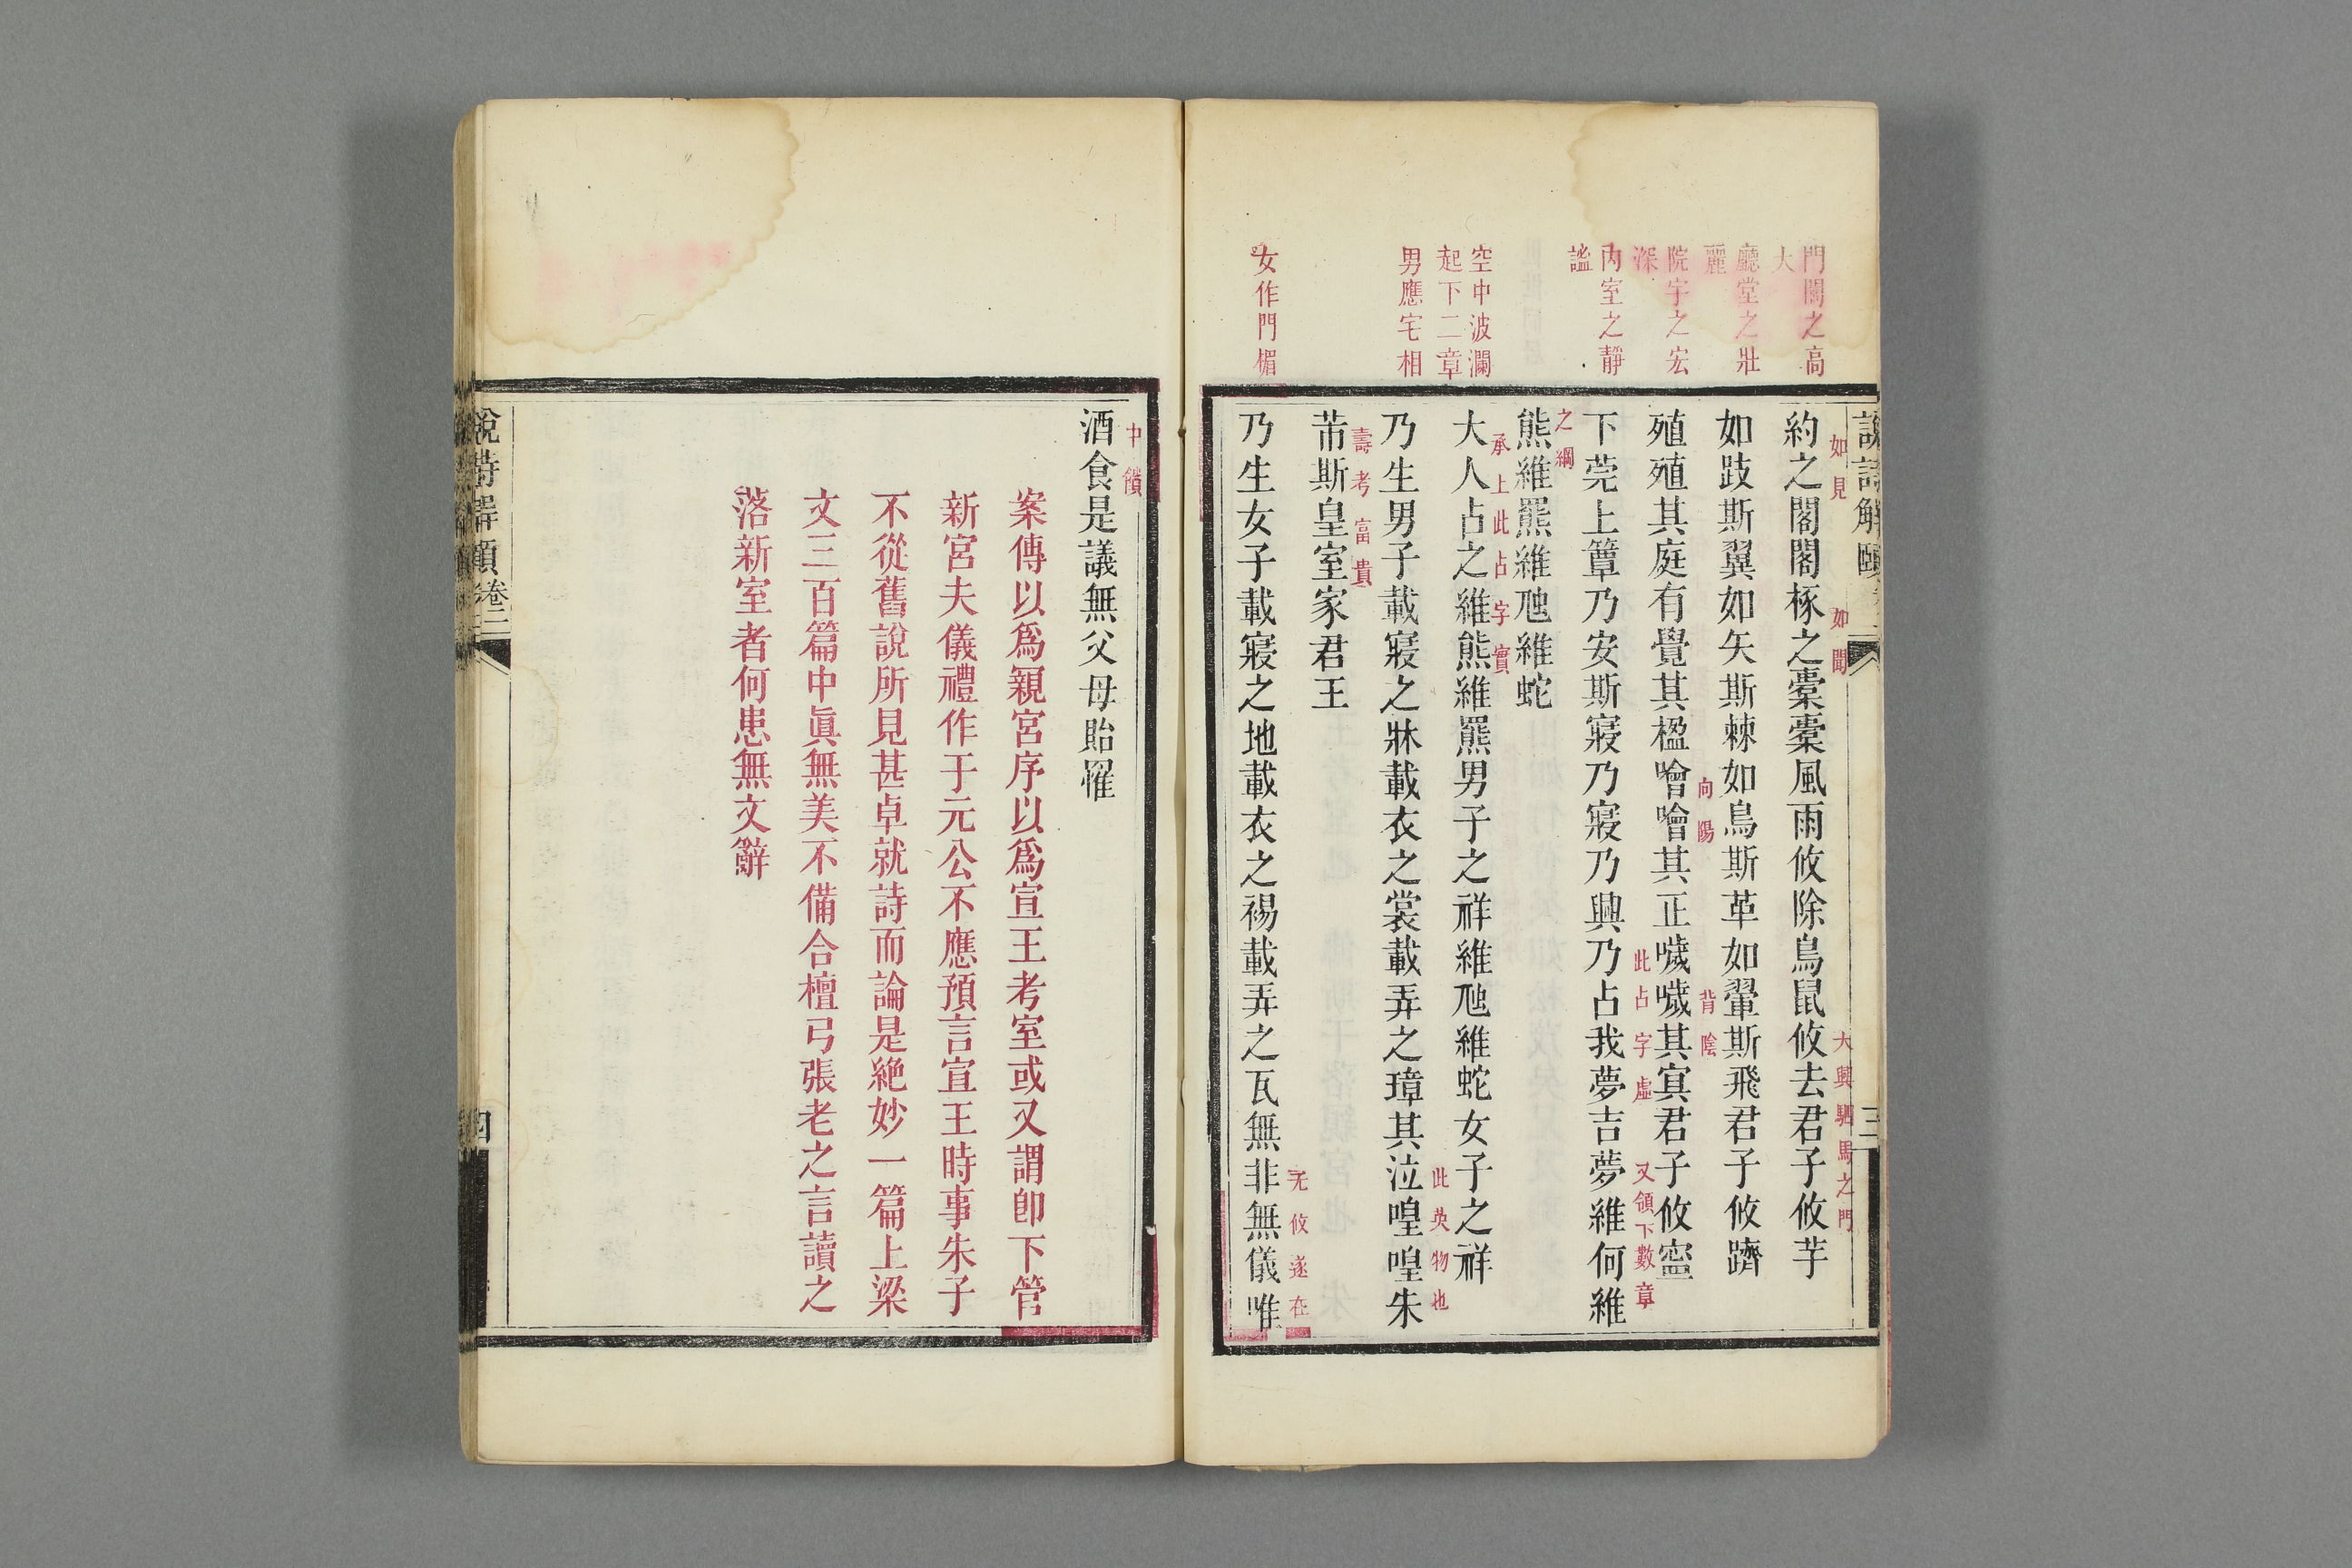 門閭之高
大
廳堂之壯
麗
院宇之宏
深
內室之靜
謐
空中波瀾
起下二章
男應宅相
女作門楣
說詩解頤
三
如見
如聞
大興駟馬之門
約之閣閣椓之橐橐風雨攸除鳥鼠攸去君子攸芋
如跂斯翼如矢斯棘如鳥斯革如翬斯飛君子攸躋
向陽
背陰
殖殖其庭有覺其楹噲噲其正噦噦其冥君子攸寧
此占字虛
又領下數章
下莞上簟乃安斯寢乃寢乃興乃占我夢吉夢維何維
之綱
熊維羆維虺維蛇
承上此占字實
大人占之維熊維羆男子之祥維虺維蛇女子之祥
此英物也
乃生男子載寢之牀載衣之裳載弄之璋其泣喤喤朱
壽考富貴
芾斯皇室家君王
无攸遂在
乃生女子載寢之地載衣之裼載弄之瓦無非無儀唯
中饋
酒食是議無父母貽罹
案傳以爲親宮序以爲宣王考室或又謂卽下管
新宮夫儀禮作于元公不應預言宣王時事朱子
不從舊說所見甚卓就詩而論是絶妙一篇上梁
文三百篇中眞無美不備合檀弓張老之言讀之
落新室者何患無文辭
說詩解頤
卷二
四